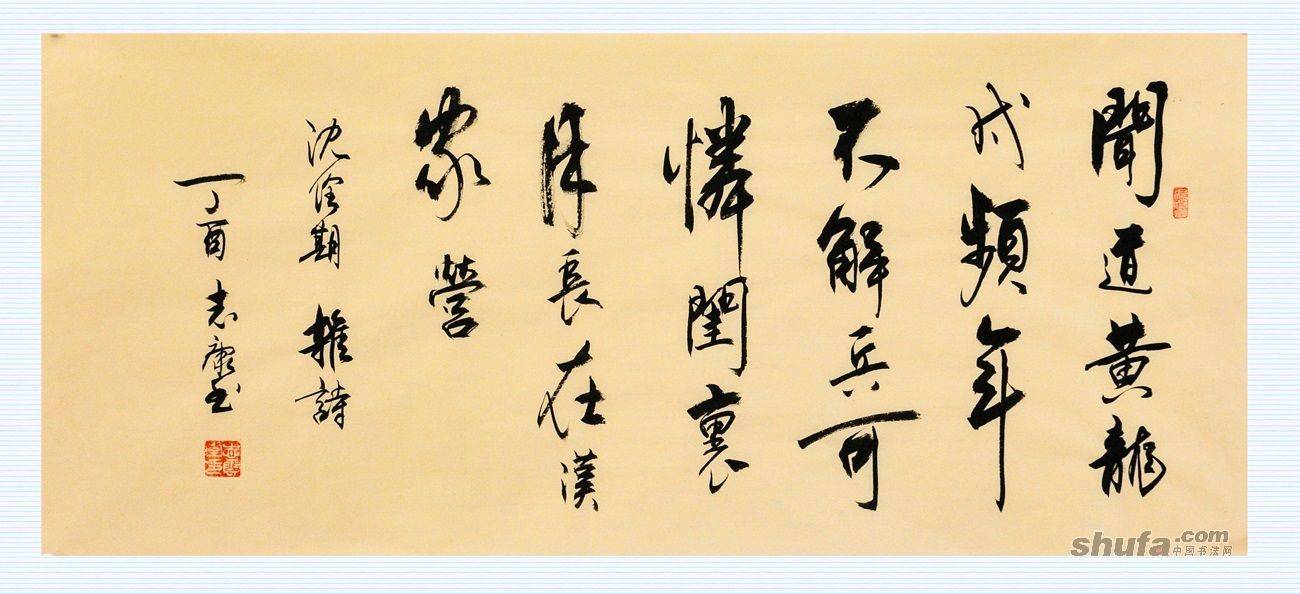 聞道黄龍
戍頻年
不解兵可
憐閨裏
月長在漢
家營
沈佺期 雜詩
丁酉 志康书
shufa.com
中国书法网